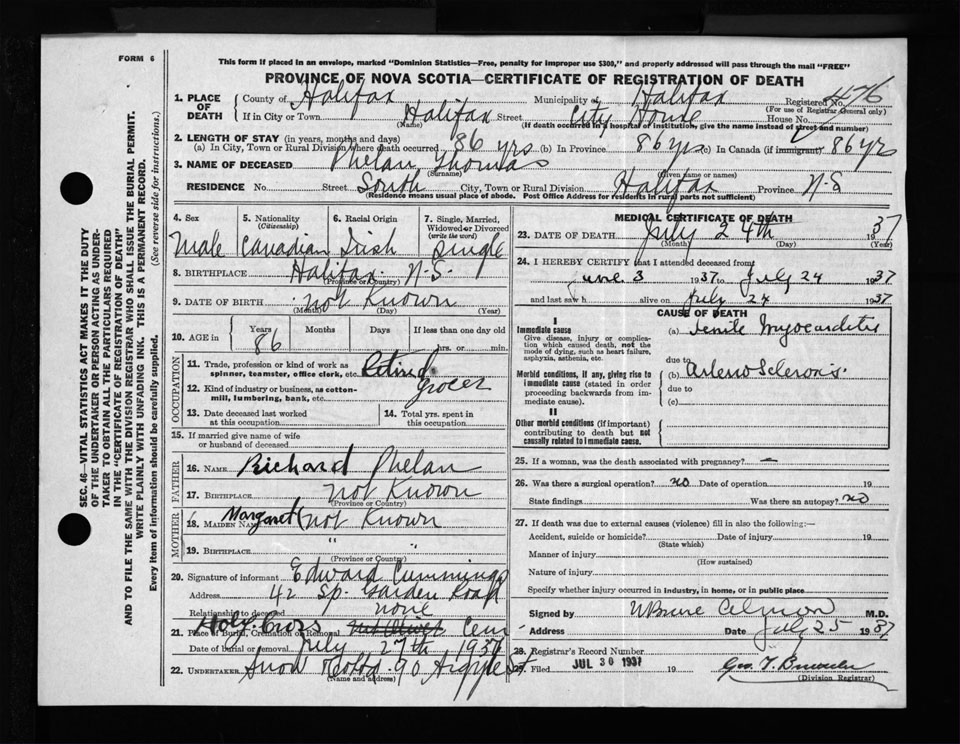 FORM 6
This form if placed in an envelope, marked "Dominion Statistics—Free, penalty for improper use $300," and properly addressed will pass through the mail "FREE"
PROVINCE OF NOVA SCOTIA—CERTIFICATE OF REGISTRATION OF DEATH
1. PLACE OF DEATH County of Halifax Municipality of Halifax Registered No. 476
(For use of Registrar General only)
If in City or Town Halifax Street City Home House No.
(Name) (If death occurred in a hospital or institution, give the name instead of street and number)
2. LENGTH OF STAY (in years, months and days)
(a) In City, Town or Rural Division where death occurred 86 yrs (b) In Province 86 yrs (c) In Canada (if immigrant) 86 yrs
3. NAME OF DECEASED Phelan Thomas
(Surname) (Given name or names)
RESIDENCE No. Street South City, Town or Rural Division Halifax Province N-S
(Residence means usual place of abode. Post Office Address for residents in rural parts not sufficient)
4. Sex 5. Nationality (Citizenship) 6. Racial Origin 7. Single, Married, Widowed or Divorced (write the word)
Male Canadian Irish Single
8. BIRTHPLACE Halifax. N.S.
(Province or Country)
9. DATE OF BIRTH not Known
(Month) (Day) (Year)
10. AGE in Years Months Days If less than one day old
86 hrs. or min.
OCCUPATION
11. Trade, profession or kind of work as spinner, teamster, office clerk, etc. Retired
12. Kind of industry or business, as cotton-mill, lumbering, bank, etc. Grocer
13. Date deceased last worked at this occupation
14. Total yrs. spent in this occupation
15. If married give name of wife or husband of deceased
FATHER
16. NAME Richard Phelan
17. BIRTHPLACE not Known
(Province or Country)
MOTHER
18. MAIDEN NAME Margaret (not Known
19. BIRTHPLACE " "
(Province or Country)
20. Signature of informant Edward Cummings
Address 42 Sp. Garden Road
Relationship to deceased none
21. Place of Burial, Cremation or Removal Holy Cross Mt Olivet Cem
Date of burial or removal July 27th 1937
22. UNDERTAKER Snow & Co Ltd. 90 Argyle St
(Name and address)
MEDICAL CERTIFICATE OF DEATH
23. DATE OF DEATH July 24th 1937
(Month) (Day) (Year)
24. I HEREBY CERTIFY that I attended deceased from
June 3 1937 to July 24 1937
and last saw h alive on July 24 1937
CAUSE OF DEATH
I
Immediate cause
Give disease, injury or complication which caused death, not the mode of dying, such as heart failure, asphyxia, asthenia, etc.
(a) Senile Myocarditis
due to
Morbid conditions, if any, giving rise to immediate cause (stated in order proceeding backwards from immediate cause).
(b) Arterio Sclerosis.
due to
(c)
II
Other morbid conditions (if important) contributing to death but not causally related to immediate cause.
25. If a woman, was the death associated with pregnancy? —
26. Was there a surgical operation? no Date of operation 19
State findings Was there an autopsy? no
27. If death was due to external causes (violence) fill in also the following:—
Accident, suicide or homicide? Date of injury 19
(State which)
Manner of injury
(How sustained)
Nature of injury
Specify whether injury occurred in industry, in home, or in public place
Signed by M.D.
Address Date July 25 1937
28. Registrar's Record Number
29. Filed JUL 30 1937 19
(Division Registrar)
SEC. 46—VITAL STATISTICS ACT MAKES IT THE DUTY
OF THE UNDERTAKER OR PERSON ACTING AS UNDER-
TAKER TO OBTAIN ALL THE PARTICULARS REQUIRED
IN THE "CERTIFICATE OF REGISTRATION OF DEATH"
AND TO FILE THE SAME WITH THE DIVISION REGISTRAR WHO SHALL ISSUE THE BURIAL PERMIT.
WRITE PLAINLY WITH UNFADING INK. THIS IS A PERMANENT RECORD.
Every item of information should be carefully supplied. (See reverse side for instructions.)